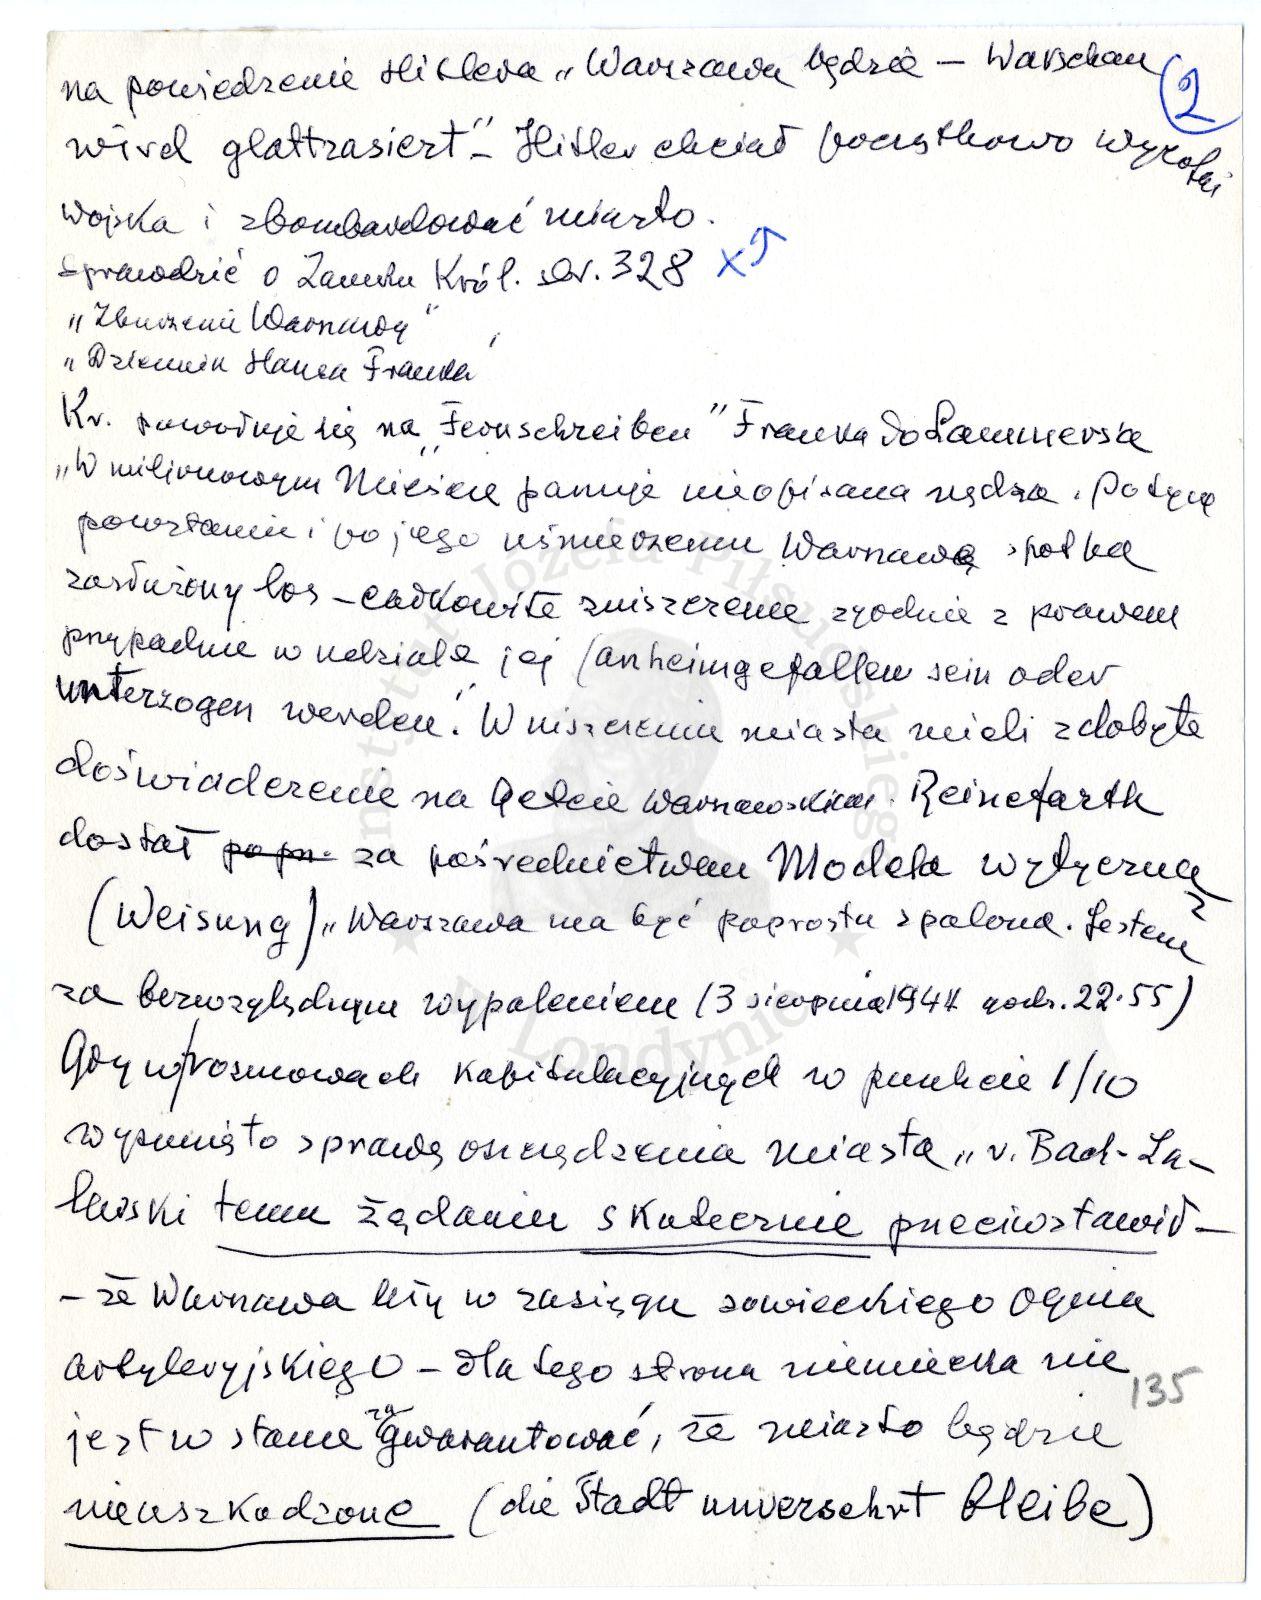 na powiedzenie Hitlera „Warszawa będzie – Warschau
2
wird glattrasiert" – Hitler chciał początkowo wycofać
wojska i zbombardować miasto.
sprawdzić o Zamku Król. str. 328 x5
„Zburzenie Warszawy"
„Dziennik Hansa Franka"
Kr. powołuje się na „Fernschreiben" Franka do Lammersa
„W milionowym mieście panuje nieopisana nędza. Po tym
powstaniu i po jego uśmierzeniu Warszawę spotka
zasłużony los – całkowite zniszczenie zgodnie z prawem
przypadnie w udziale jej (anheimgefallen sein oder
unterzogen werden". W niszczeniu miasta mieli zdobyte
doświadczenie na Getcie warszawskim. Reinefarth
dostał za pośrednictwem Modela wytyczną
(Weisung) „Warszawa ma być poprostu spalona. Jestem
za bezwzględnym wypaleniem (3 sierpnia 1944 godz. 22.55)
Gdy w rozmowach kapitulacyjnych w punkcie 1/10
wysunięto sprawę oszczędzenia miasta „v. Bach-Za-
lewski temu żądaniu skutecznie przeciwstawił –
– że Warszawa leży w zasięgu sowieckiego ognia
artyleryjskiego – dlatego strona niemiecka nie
135
jest w stanie zagwarantować, że miasto będzie
nieuszkodzone (die Stadt unversehrt bleibe)
Instytut Józefa Piłsudskiego
w Londynie